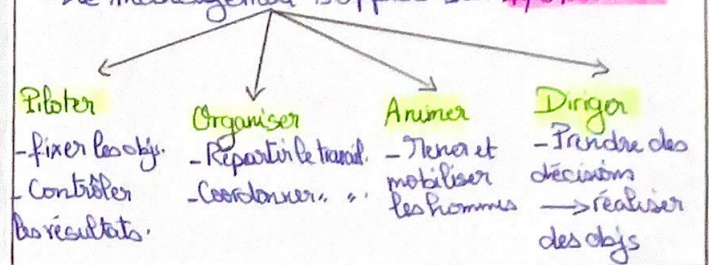 Le management s'appuie sur
Piloter
- fixer les objs.
- Contrôler
les résultats.
Organiser
- Répartir le travail.
- Coordonner " ".
Animer
- Mener et
mobiliser
les hommes
Diriger
- Prendre des
décisions
→ réaliser
des objs